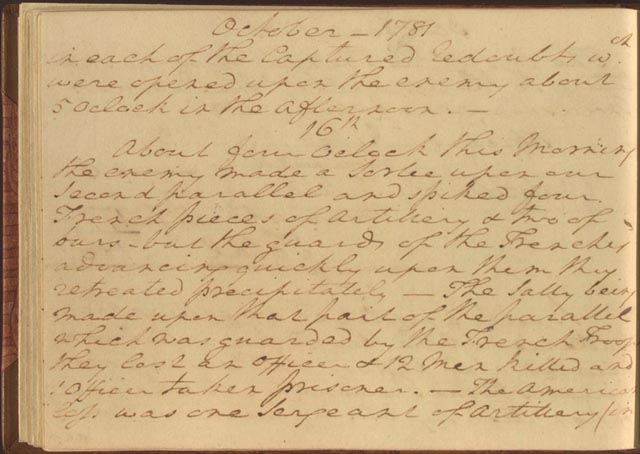 October - 1781
in each of the Captured redoubts wch
were opened upon the enemy about
5 Oclock in the Afternoon. —
16th
About four Oclock this Morning
the enemy made a Sortee upon our
Second parallel and spiked four
French pieces of Artillery & two of
ours - but the guards of the Trenches
advancing quickly upon them they
retreated precipitately — The Sally being
made upon that part of the parallel
which was guarded by the French Troops
they lost an Officer & 12 Men killed and
1 Officer taken prisoner. — The American
loss was one Sergeant of Artillery (in